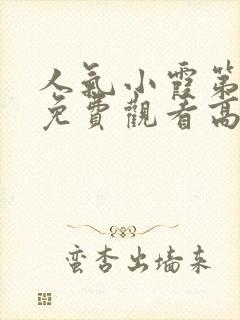 人氣小霞第
免費觀看高
蛮杏出墙来